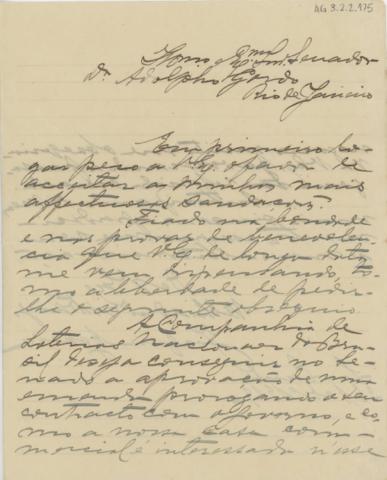 AG 3.2.2.175
Illmo Exmo Snr. Senador
Dr. Adolpho Gordo
Rio de Janeiro
Em primeiro lo-
gar peço a V. Ex. o favor de
acceitar as minhas mais
affectuosas saudações.
Fiado na bondade
e nas provas de benevolen-
cia que V. Ex. de longa data
me vem dispensando, to-
mo a liberdade de pedir-
lhe o seguinte obsequio.
A Companhia de
Loterias Nacionaes do Bra-
sil deseja conseguir no Se-
nado a approvação de uma
emenda prorogando o seu
contracto com o Governo, e co-
mo a nossa casa com-
mercial é interessada n'esse